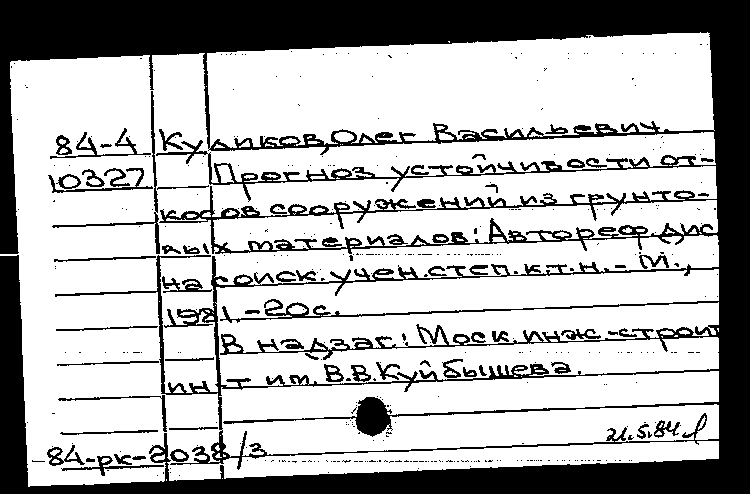 84-4 Куликов, Олег Васильевич.
10327 Прогноз устойчивости от-
косов сооружений из грунто-
вых материалов: Автореф. дис
на соиск. учен. степ. к.т.н. - М.,
1981. - 20с.
В надзаг.: Моск. инж.-строит
ин-т им. В.В. Куйбышева.
84-рк-2038/3
21.5.84